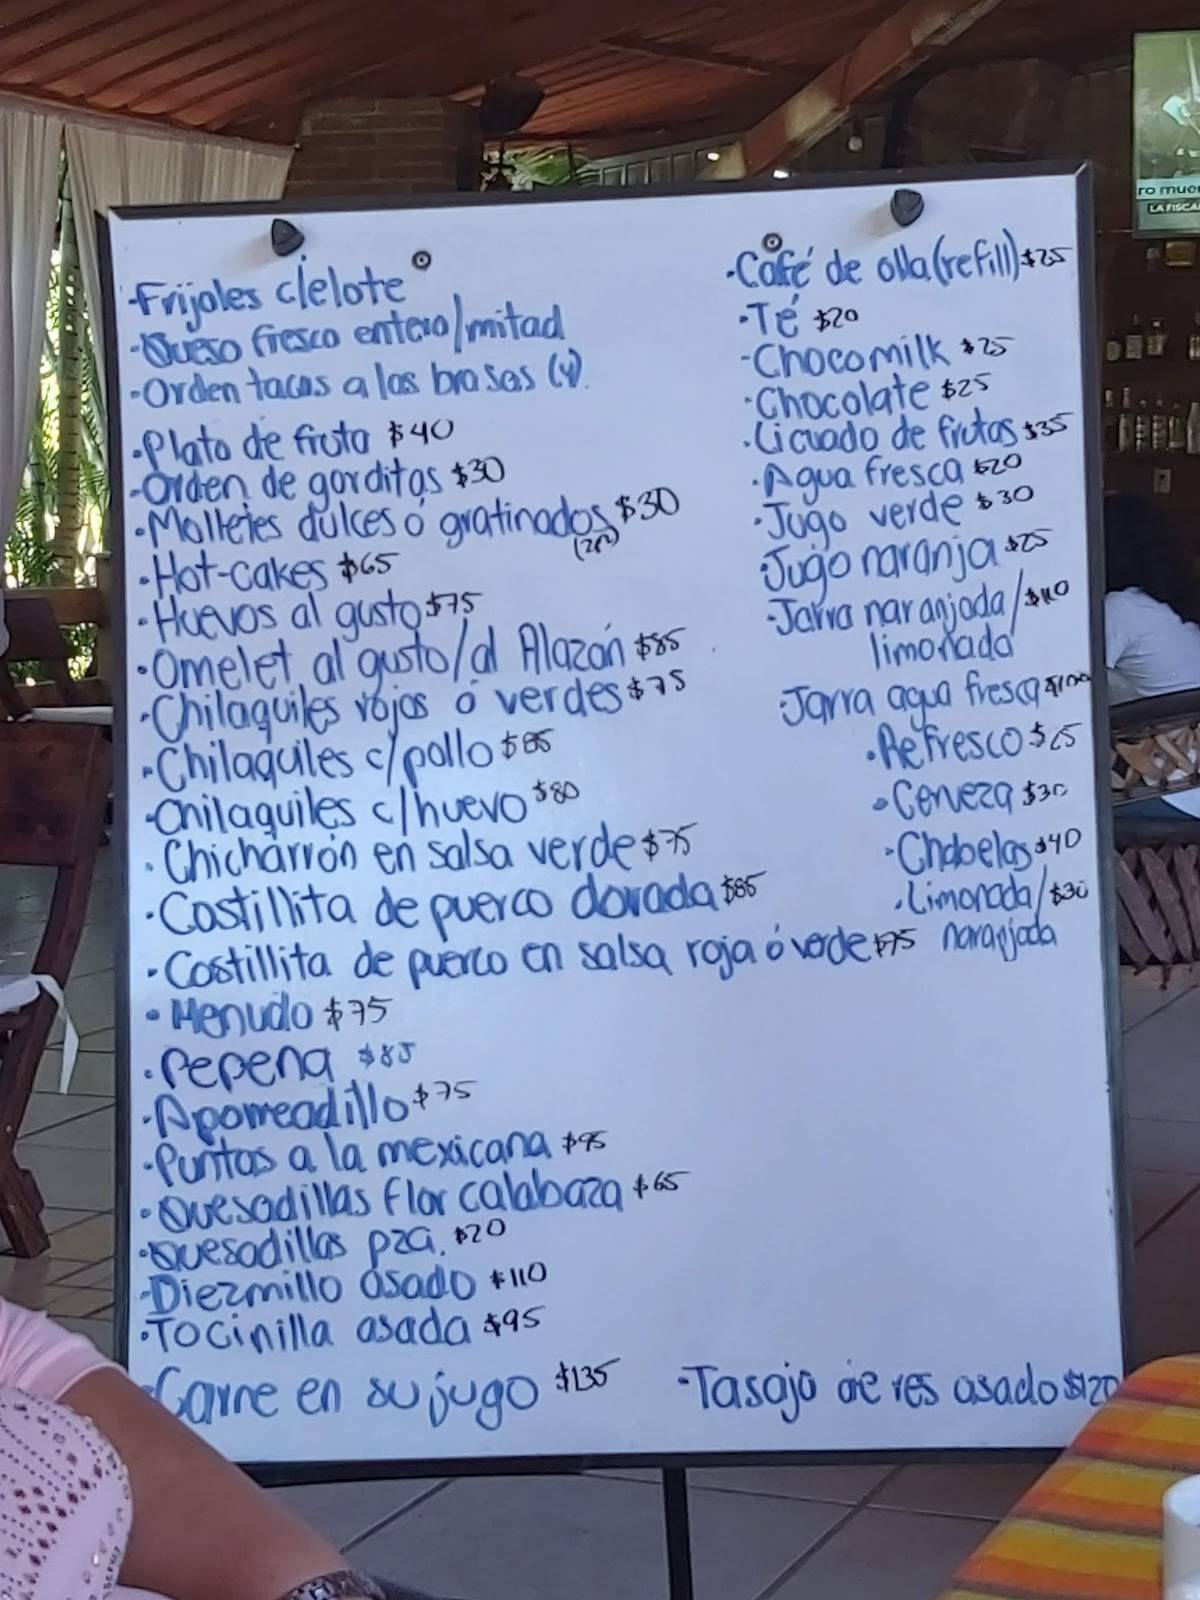 ·Frijoles c/elote
·Queso fresco entero/mitad
·Orden tacos a las brasas (4).
·Plato de fruta $40
·Orden de gorditas $30
·Molletes dulces ó gratinados $30
(2p)
·Hot-cakes $65
·Huevos al gusto $75
·Omelet al gusto/al Alazán $85
·Chilaquiles rojos ó verdes $75
·Chilaquiles c/pollo $85
·Chilaquiles c/huevo $80
·Chicharrón en salsa verde $75
·Costillita de puerco dorada $85
·Costillita de puerco en salsa roja ó verde $75
·Menudo $75
·Pepena $85
·Aporreadillo $75
·Puntas a la mexicana $95
·Quesadillas flor calabaza $65
·Quesadillas pza. $20
·Diezmillo asado $110
·Tocinilla asada $95
·Carne en su jugo $135
·Café de olla (refill) $25
·Té $20
·Chocomilk $25
·Chocolate $25
·Licuado de frutas $35
·Agua fresca $20
·Jugo verde $30
·Jugo naranja $25
·Jarra naranjada/ $110
limonada
·Jarra agua fresca $100
·Refresco $25
·Cerveza $30
·Chabelas $40
·Limonada/ $30
naranjada
·Tasajo de res asado $120
ro mue
LA FISCA